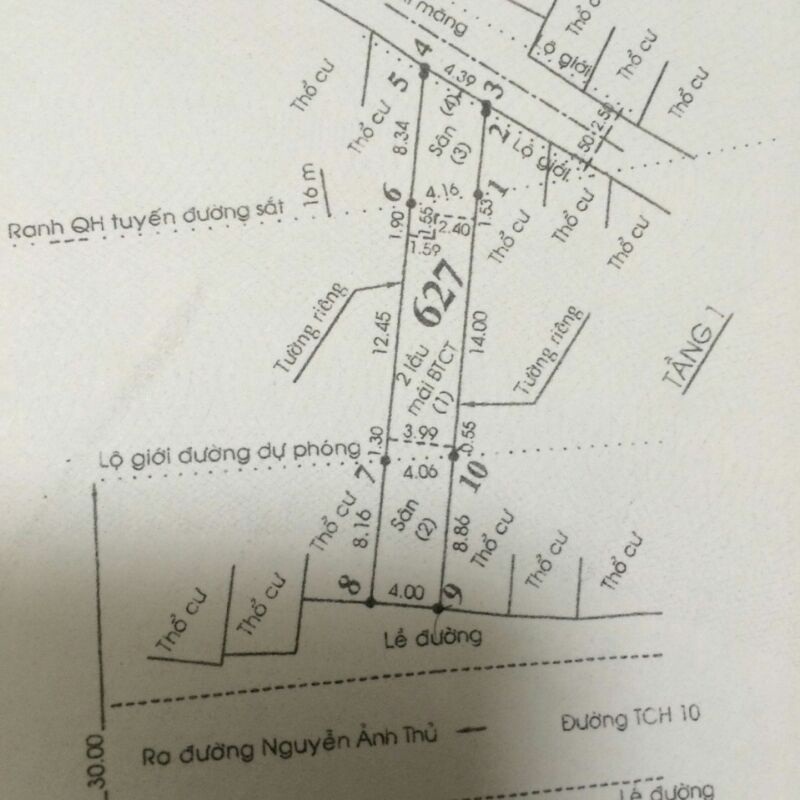 măng
Thổ cư
ộ giới
Thổ cư
Thổ cư
4
4.39
3
5
Thổ cư
Thổ cư
(4)
Sân
(3)
8.34
2
Lộ giới
2.50
Ranh QH tuyến đường sắt
16 m
6
4.16
1
1.90
1.55
2.40
1.53
1.59
Thổ cư
Thổ cư
Thổ cư
627
Tường riêng
12.45
14.00
2 lầu
mái BTCT
(1)
Tường riêng
TẦNG 1
Lộ giới đường dự phóng
1.30
3.99
0.55
7
4.06
10
Thổ cư
8.16
Sân
(2)
8.86
Thổ cư
Thổ cư
Thổ cư
Thổ cư
Thổ cư
8
4.00
9
Lề đường
30.00
Ra đường Nguyễn Ảnh Thủ
Đường TCH 10
Lề đường